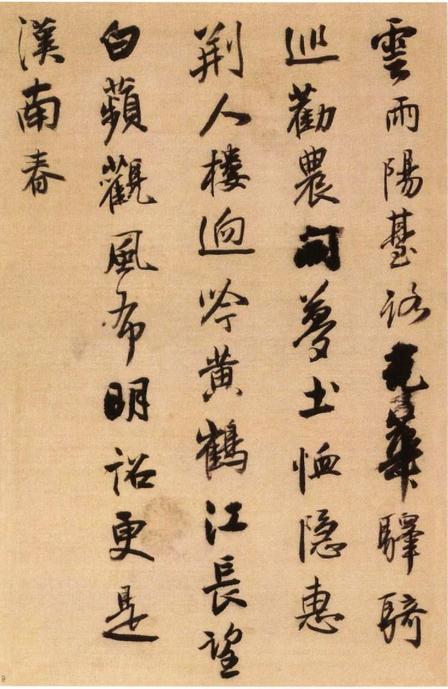 雲雨陽臺路光華驛騎
巡勸農開夢土恤隱惠
荆人樓迥吟黄鶴江長望
白蘋觀風布明詔更是
漢南春
9